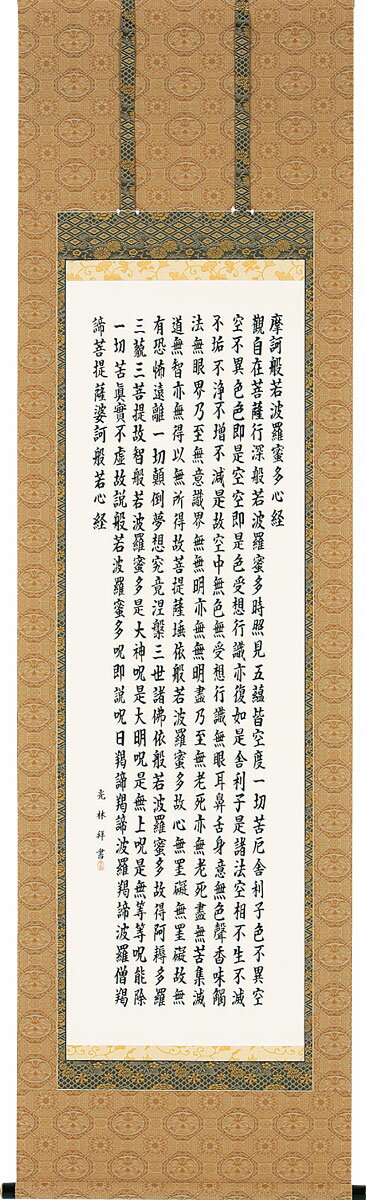 摩訶般若波羅蜜多心経
觀自在菩薩行深般若波羅蜜多時照見五蘊皆空度一切苦厄舎利子色不異空
空不異色色即是空空即是色受想行識亦復如是舎利子是諸法空相不生不滅
不垢不浄不増不減是故空中無色無受想行識無眼耳鼻舌身意無色聲香味觸
法無眼界乃至無意識界無無明亦無無明盡乃至無老死亦無老死盡無苦集滅
道無智亦無得以無所得故菩提薩埵依般若波羅蜜多故心無罣礙無罣礙故無
有恐怖遠離一切顛倒夢想究竟涅槃三世諸佛依般若波羅蜜多故得阿耨多羅
三藐三菩提故智般若波羅蜜多是大神呪是大明呪是無上呪是無等等呪能除
一切苦真實不虚故説般若波羅蜜多呪即説呪曰羯諦羯諦波羅羯諦波羅僧羯
諦菩提薩婆訶般若心経
亮林拝書